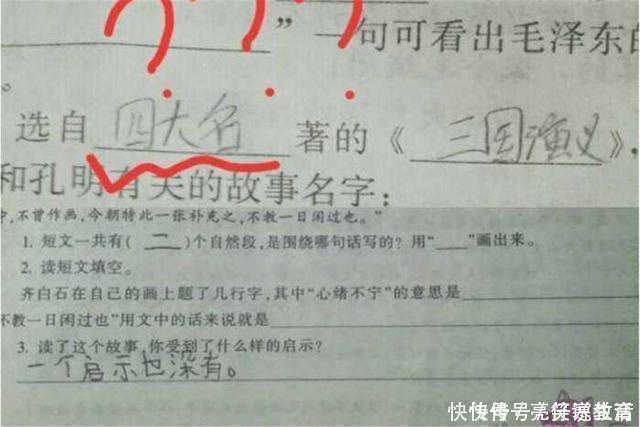 ???
"一句可看出毛泽东的
。
选自 四大名 著的《 三国演义 》,
和孔明有关的故事名字:
中,不曾作画,今朝特此一张补充之,不教一日闲过也。"
1. 短文一共有( 二 )个自然段,是围绕哪句话写的? 用"___"画出来。
2. 读短文填空。
齐白石在自己的画上题了几行字,其中"心绪不宁"的意思是
不教一日闲过也"用文中的话来说就是
3. 读了这个故事,你受到了什么样的启示?
一个启示也没有。